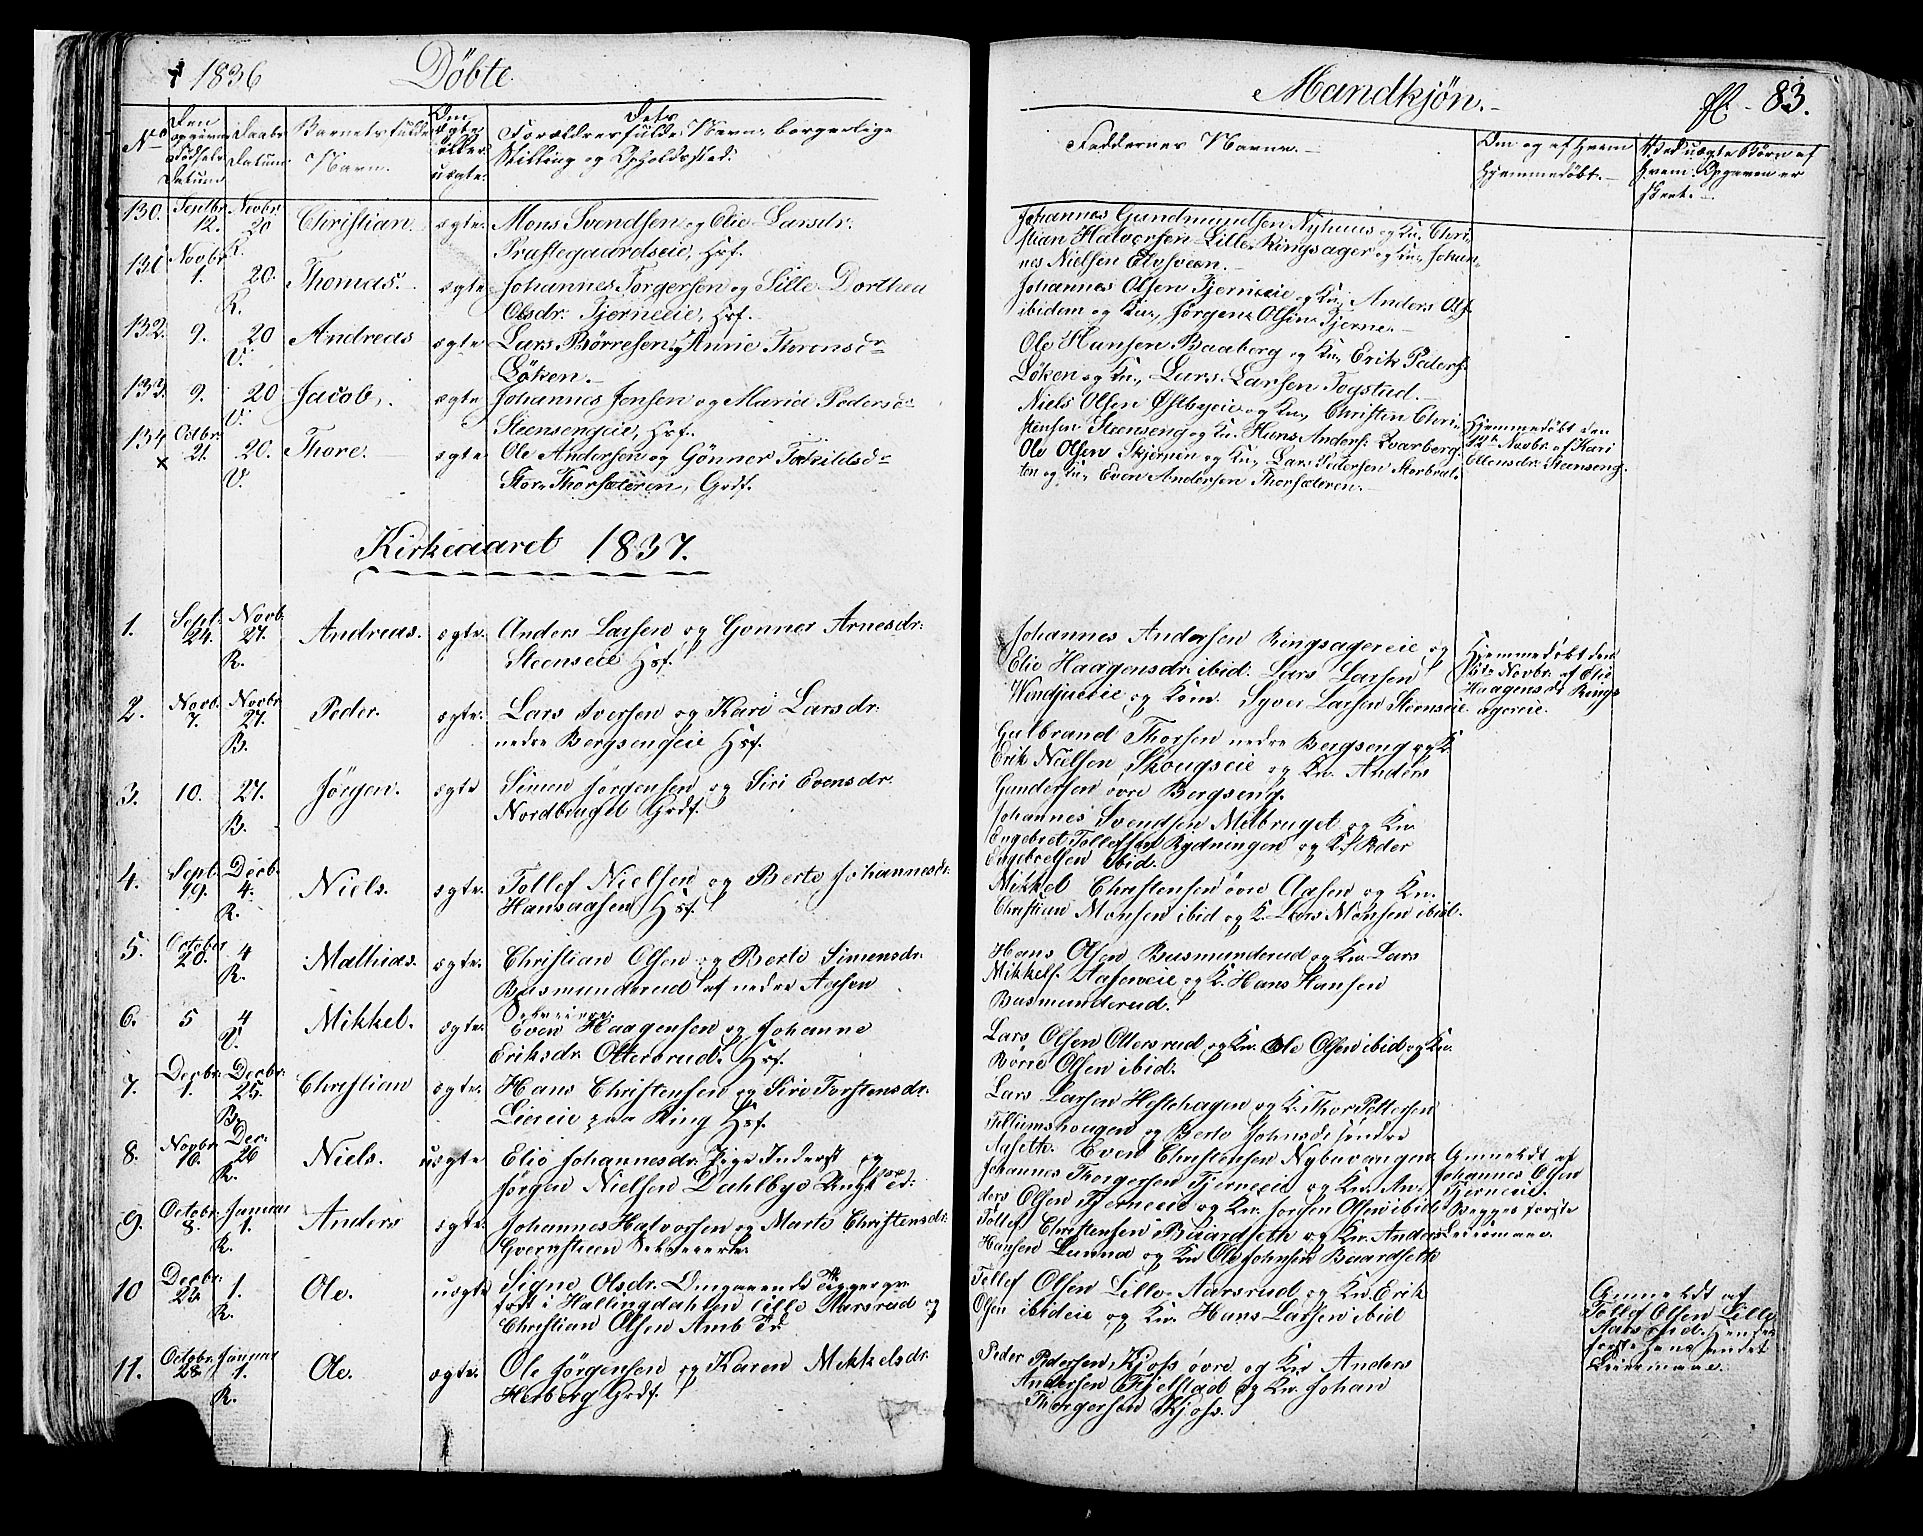 1836 Döbte
Mandkjön.
83.
No
Den opgivne Fødsels Datum
Daabs Datum.
Barnets fulde Navn.
Om ægte eller uægte.
Forældres fulde Navn, borgerlige
Stilling og Opholdssted.
Faddernes Navne.
Om og af Hvem
Hjemmedöbt.
Ved uægte Børn af
hvem Opgaven er
skeet.
130. Septbr. 12. Novbr. 20 R. Christian ægte Mons Svendsen og Elie Larsdr.
Præstegaardseie, Hsf.
Johannes Gundmundsen Nyhuus og Kn., Chri-
stian Halvorsen Lille Ringsager og Kn., Johan-
nes Nielsen Elvsveen.
131 Novbr. 1. 20. R. Thomas. ægte Johannes Torgersen og Sille Dorthea
Olsdr. Tjerneeie, Hsf.
Johannes Olsen Tjerneeie og Kn., Anders Ols.
ibidem og Kn., Jørgen Olsen Tjerne.
132. 9. 20 V. Andreas ægte Lars Börresen og Anne Thorensdr
Löken.
Ole Hansen Baaberg og Kn., Erik Peders.
Löken og Kn., Lars Larsen Fogstad.
133. 9. 20 V. Jacob, ægte Johannes Jensen og Maria Pedersdr
Steensengeie, Hsf.
Niels Olsen Østbyeie og Kn., Christen Chri-
stensen Steenseng og Kn. Hans Anders. Qvarberg.
Hjemmedöbt den
12te Novbr. af Kari
Ellensdr. Steenseng.
134 Octbr. 21. 20. V. Thore. ægte Ole Andersen og Gönner Torkildsdr
Store Thorsæteren, Grdf.
Ole Olsen Skjernen og Kn., Lars Pedersen Storbrat-
ten og Kn., Even Andersen Thorsæteren.
Kirkeaaret 1837.
1. Sept. 24. Novb. 27. R. Andreas. ægte. Anders Larsen og Gonner Arnesdr.
Steenseie Hsf.
Johannes Andersen Ringsagereie og
Elie Haagensdr. ibid. Lars Larsen
Wendjueeie og Kone. Syver Larsen Steenseie
Hjemmedöbt den
Novbr. af Elie
Haagensdr. Rings-
agereie.
2. Novb. 7. Novbr. 27. B. Peder. ægte. Lars Iversen og Kari Larsdr.
nedre Bergsengeie Hsf.
Gulbrand Thorsen nedre Bergseng og K.
Erik Nielsen Skougseie og Kn. Anders
Gundersen övre Bergseng.
3. 10. 27. B. Jörgen. ægte Simen Jörgensen og Siri Evensdr.
Nordbruget Grdf.
Johannes Svendsen Melbruget og Kn.
Engebret Tollefsen Rydningen og K. Peder
Engebretsen ibid.
4. Sept. 19. Decb. 4. R. Niels. ægte. Tollef Nielsen og Berte Johannesdr.
Hansaasen Hsf.
Mikkel Christensen övre Aasen og Kn.
Christian Monsen ibid og K. Lars Monsen ibid.
5. October 20. 4 R. Mathias. ægte. Christian Olsen og Berte Simensdr.
Busmunderud af nedre Aasen
Hans Olsen Busmunderud og Kn. Lars
Mikkels. Aaseneie og K. Hans Hansen
Busmunderud.
6. 5 4 V. Mikkel. ægte. Even Haagensen og Johanne
Eriksdr. Otterbrud. Hsf.
Lars Olsen Ottersrud og Kn. Ole Olsen ibid og Kn.
Börre Olsen ibid.
7. Decbr. 1. Decbr. 25. B. Christian ægte. Hans Christensen og Siri Torstensdr.
Liereie paa Ring Hsf.
Lars Larsen Hestehagen og K. Thor Pettersen
Tillumshougen og Berte Johnsdr. söndre
Aaseth. Even Christensen Nybuvangen
8. Novbr. 16. Dec. 26 R. Niels. uægte Elie Johannesdr. Pige Inderst og
Jörgen Nielsen Dahlbye Ungk.
Johannes Thorgersen Tjerneeie og Kn. An-
ders Olsen Tjerneeie og Kn. Jörgen Olsen ibid.
Anmeldt af
Johannes Olsen
Tjerneeie.
Begges förste
Leiermaal.
9. Octobr. 8. Januar 1. R. Anders ægte. Johannes Halvorsen og Marte Christensdr.
Tollef Christensen Baardseth og Kn. Anders
Hansen Lunna og Kn Ole Johnsen Baardseth
10 Decbr. 23. 1. R. Ole. uægte Signe Olsdr. Omgaaende Tigger
föd i Hallingdahlen Lille Aarsrud og
Christian Olsen Amb
Tollef Olsen Lille Aarsrud og Kn. Erik
Olsen ibideie og Kn. Hans Larsen ibid
Anmeldt af
Tollef Olsen Lille
Aarsrud. Hendes
förste hans andet
Leiermaal.
11. Octobr. 28. Januar 1. R. Ole. ægte. Ole Jörgensen og Karen Mikkelsdr.
Herberg Grdf.
Peder Pedersen Kjoss övre og Kn Anders
Andersen Fjelstad og Kn. Johan
Thorgersen Kjoss.